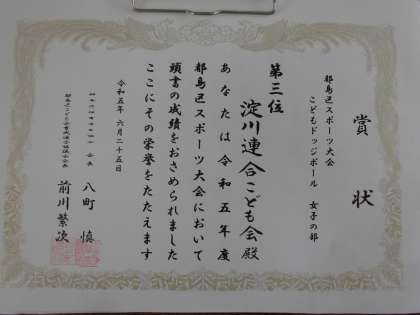 賞状
都島区スポーツ大会
こどもドッジボール 女子の部
第三位
淀川連合こども会殿
あなたは令和五年度
都島区スポーツ大会において
頭書の成績をおさめられました
ここにその栄誉をたたえます
令和五年 六月二十五日
会長 八町 慎
前川繁次